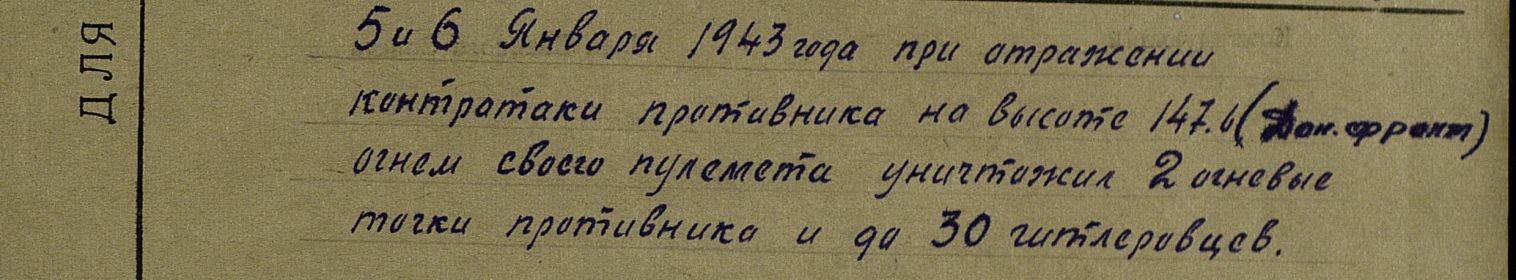 ДЛЯ
5 и 6 Января 1943 года при отражении
контратаки противника на высоте 147.6 (Дон. фронт)
огнем своего пулемета уничтожил 2 огневые
точки противника и до 30 гитлеровцев.